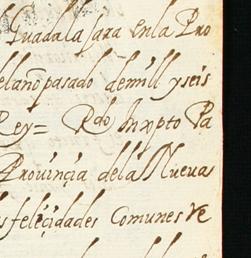 Guadalajara en la Pro
el año pasado de mill y seis
Rey = Rdo In xpto Pa
Prouinçia de la Nueua
s feliçidades Comunes Ve